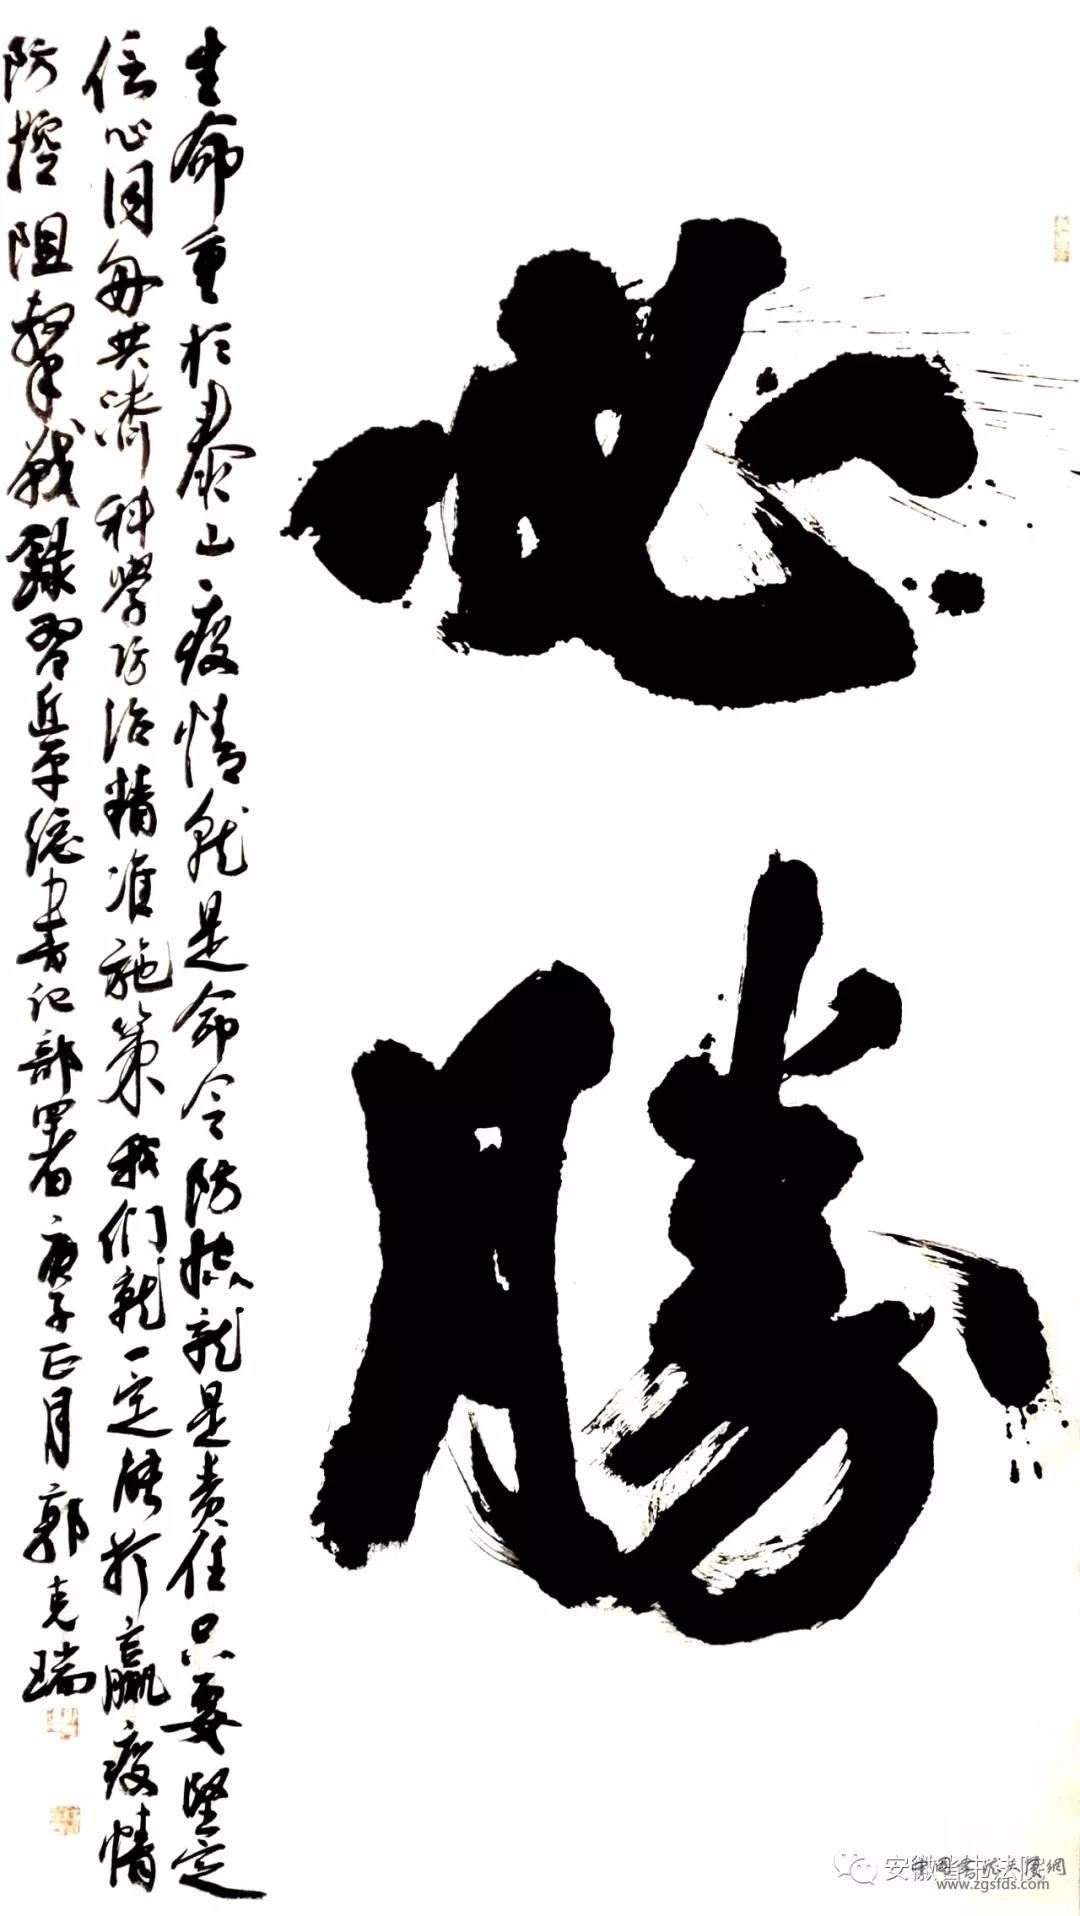 必勝
生命重於泰山疫情就是命令防控就是责任只要坚定
信心同舟共濟科學防治精准施策我们就一定能打赢疫情
防控阻擊戰錄習近平總書记部署庚子正月郭克瑞
安徽省书法院
中国书法大厦網
www.zgsfds.com